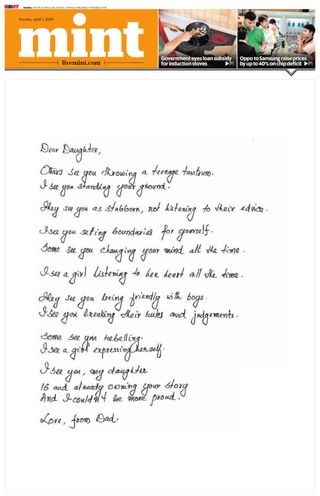 mint
Tuesday, April 7, 2026
mint
livemint.com
Government eyes loan subsidy
for induction stoves ▶P1
Oppo to Samsung raise prices
by up to 40% on chip deficit ▶P1
Dear Daughter,
Others see you throwing a teenage tantrum.
I see you standing your ground.
They see you as stubborn, not listening to their advice.
I see you setting boundaries for yourself.
Some see you changing your mind all the time.
I see a girl listening to her heart all the time.
They see you being friendly with boys.
I see you breaking their rules and judgements.
Some see you rebelling.
I see a girl expressing herself.
I see you, my daughter
16 and already owning your story
And I couldn't be more proud.
Love, from Dad.